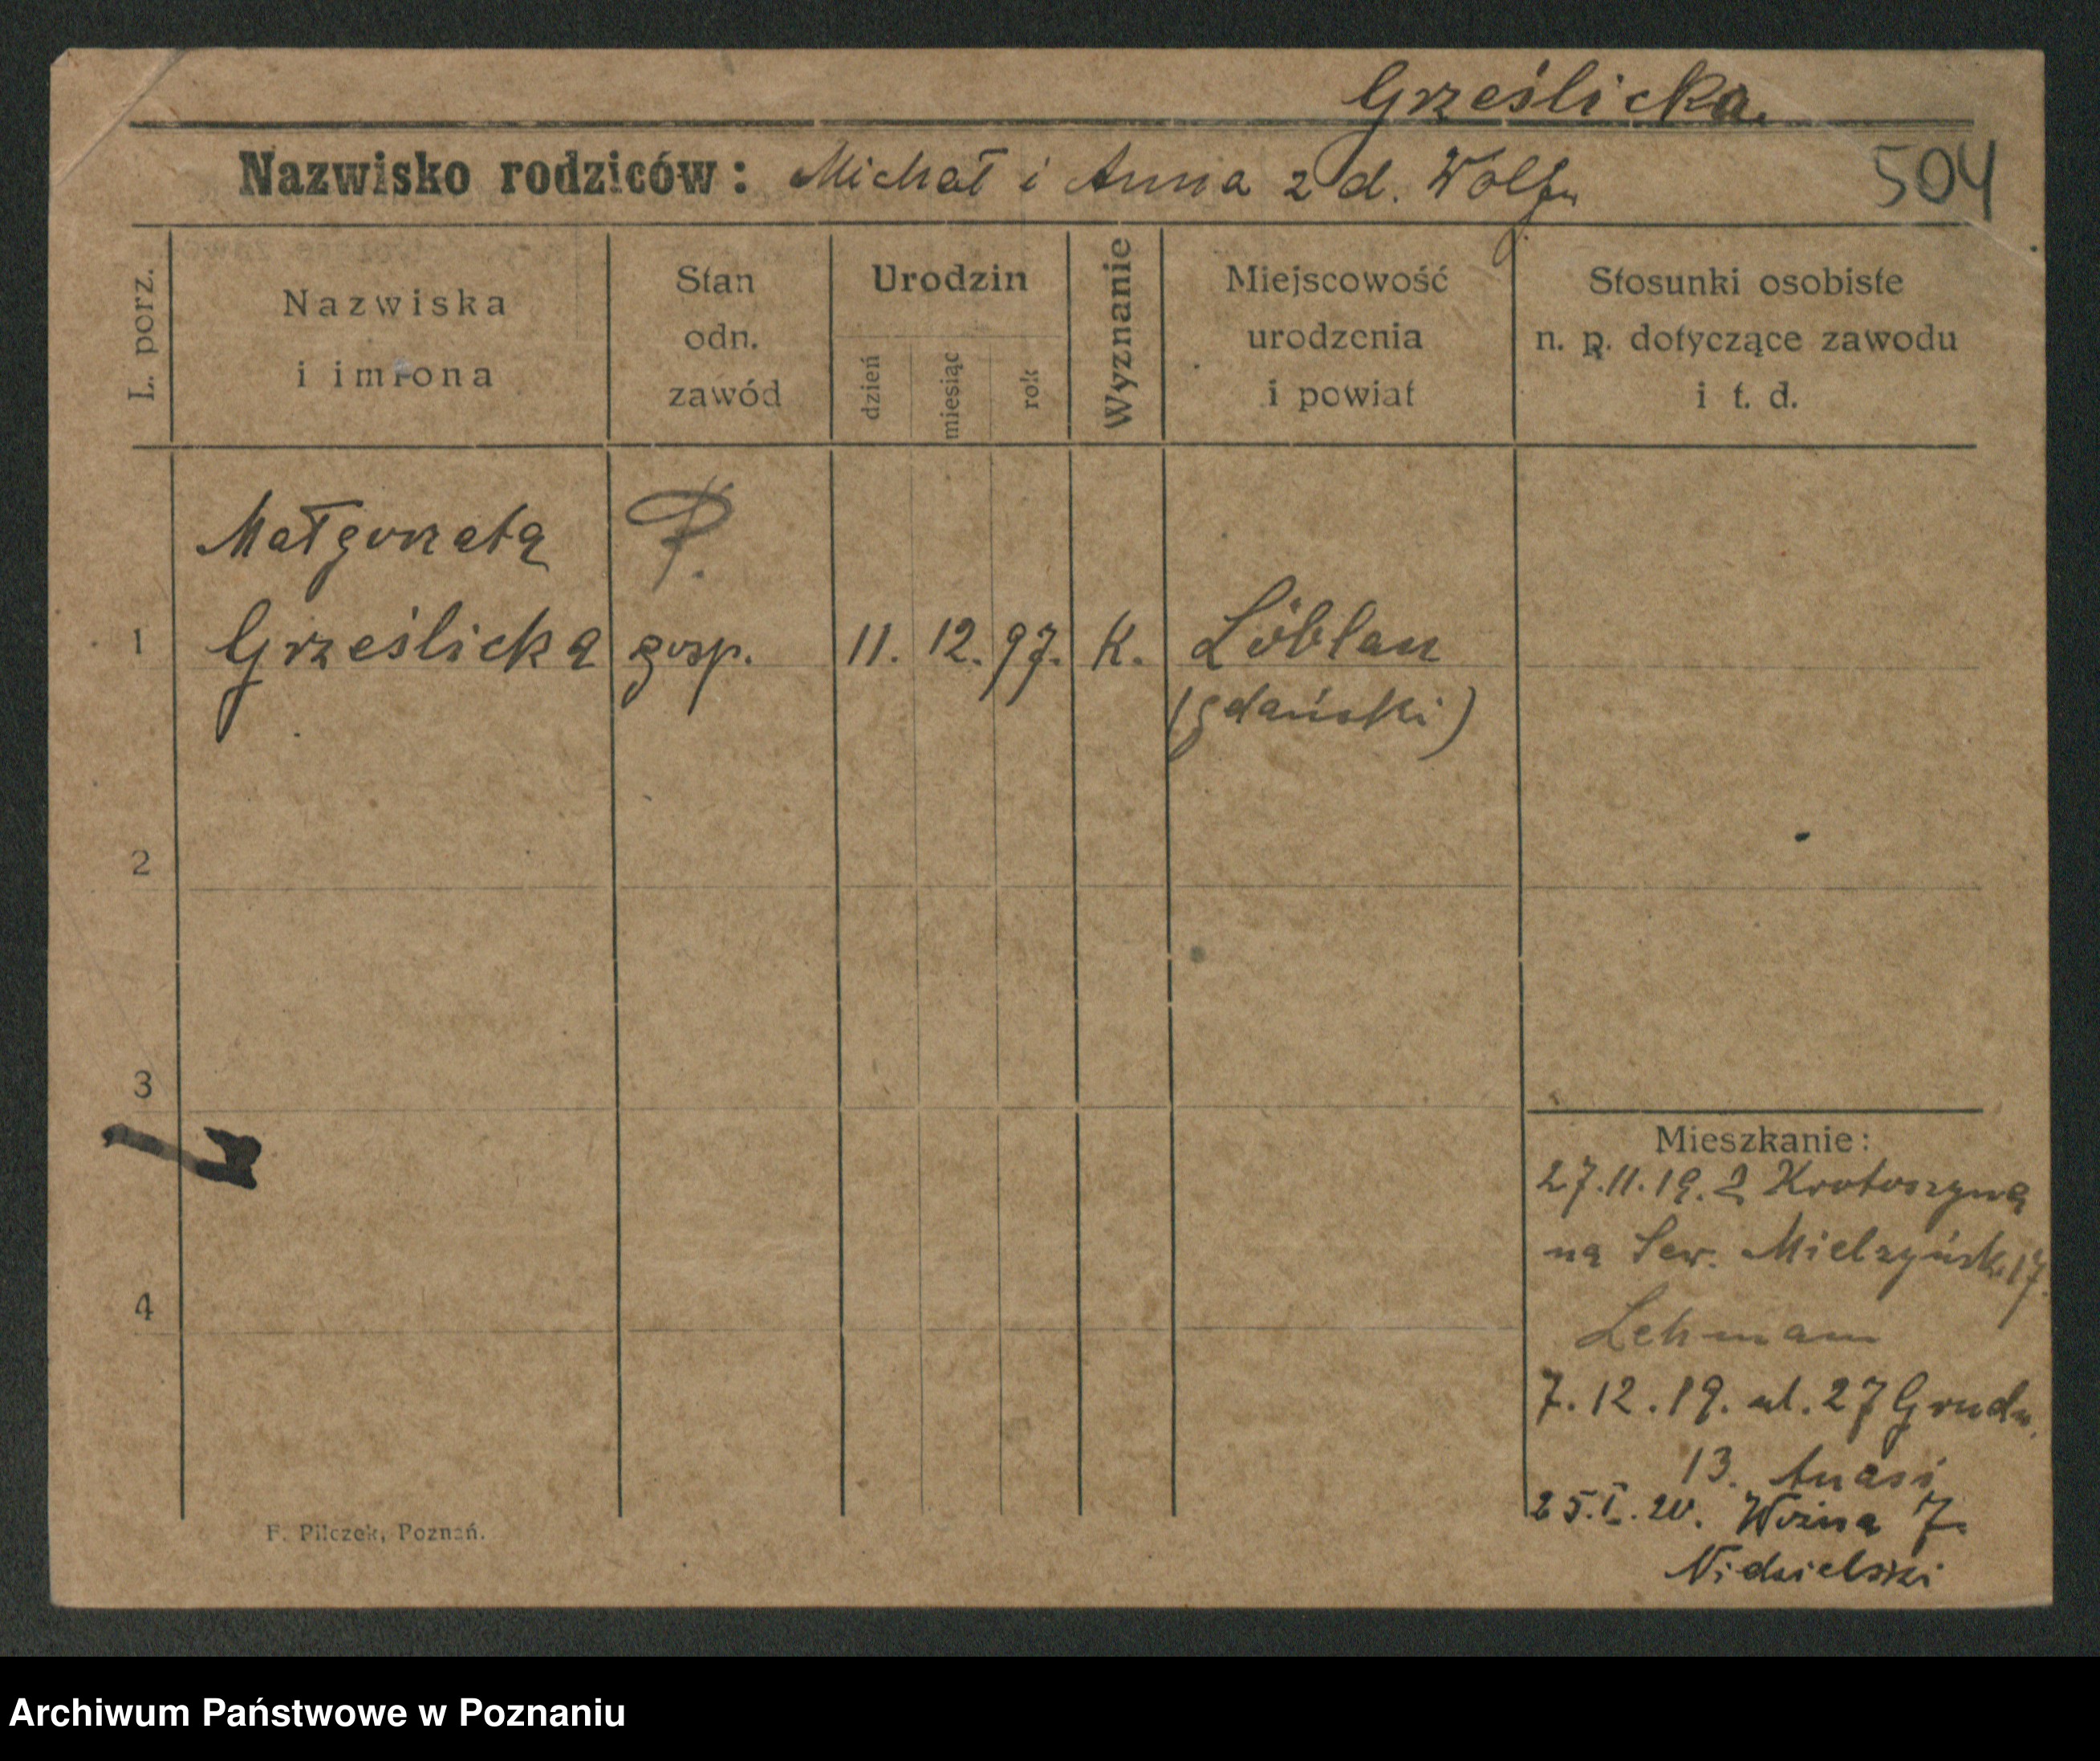 Grześlicka.
Nazwisko rodziców: Michał i Anna z d. Wolf
504
L. porz.
Nazwiska
i imiona
Stan
odn.
zawód
Urodzin
dzień
miesiąc
rok
Wyznanie
Miejscowość
urodzenia
i powiat
Stosunki osobiste
n. p. dotyczące zawodu
i t. d.
Małgorzata
P.
1 Grześlicka gosp. 11. 12. 97. K. Löblau
(gdański)
2
3
4
Mieszkanie:
27.11.19. z Krotoszyna
na Sew. Mielżyńsk. 17.
Lehmann
7.12.19. ul. 27 Grudn.
13.
25.I.20. Woźna 7.
Nidzielski
F. Pilczek, Poznań.
Archiwum Państwowe w Poznaniu